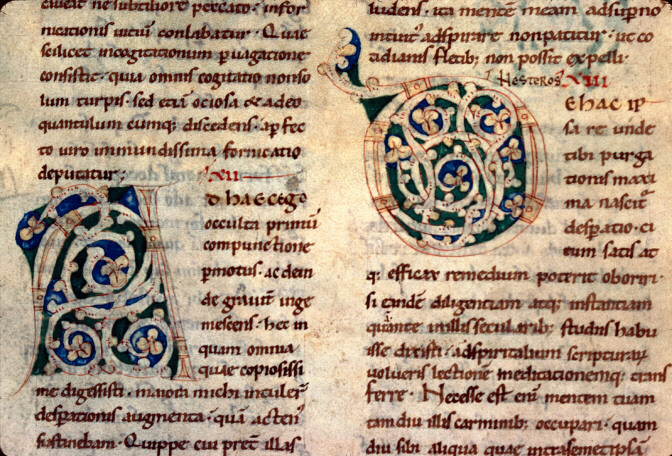 ciuicet ne subtiliore peccato infor
nicationis uiciũ conlabatur. Quae
scilicet incogitationum peruagatione
consistit. quia omnis cogitatio nonso
lum turpis. sed etiã ociosa & adeo
quantulum cumq; discedens ap̃fec
to uiro immundissima fornicatio
deputatur; XII
D HAEC EGO
occulta primũ
compunctione
ꝑmotus. ac dein
de grauit̃ inge
mescens. hec in
quam omnia
quae copiosissi
me digessisti. maiorẽ michi inculer̃
desperationis augmenta. quã actenꝰ
sustinebam. Quippe cui pret̃ illas
ludens. ita mentẽ meam adsupno
intuitu adspirare nonpatitur. ut co
tidianis fletib; non possit expelli.
NHESTEROS XIII
E HAC IP
sa re unde
tibi purga
tionis maxi
ma nascit̃
desꝑatio. ci
eum satis at
q; efficax remedium poterit oboriri.
si eandẽ diligentiam atq; instantiam
quante inillis secularib; studiis habu
isse dixisti. adspiritalium scripturaꝝ
volueris lectionẽ meditationemq; trans
ferre. Necesse est enĩ mentem tuam
tam diu illis carminib; occupari. quam
diu sibi aliqua quae intrasemetipsã